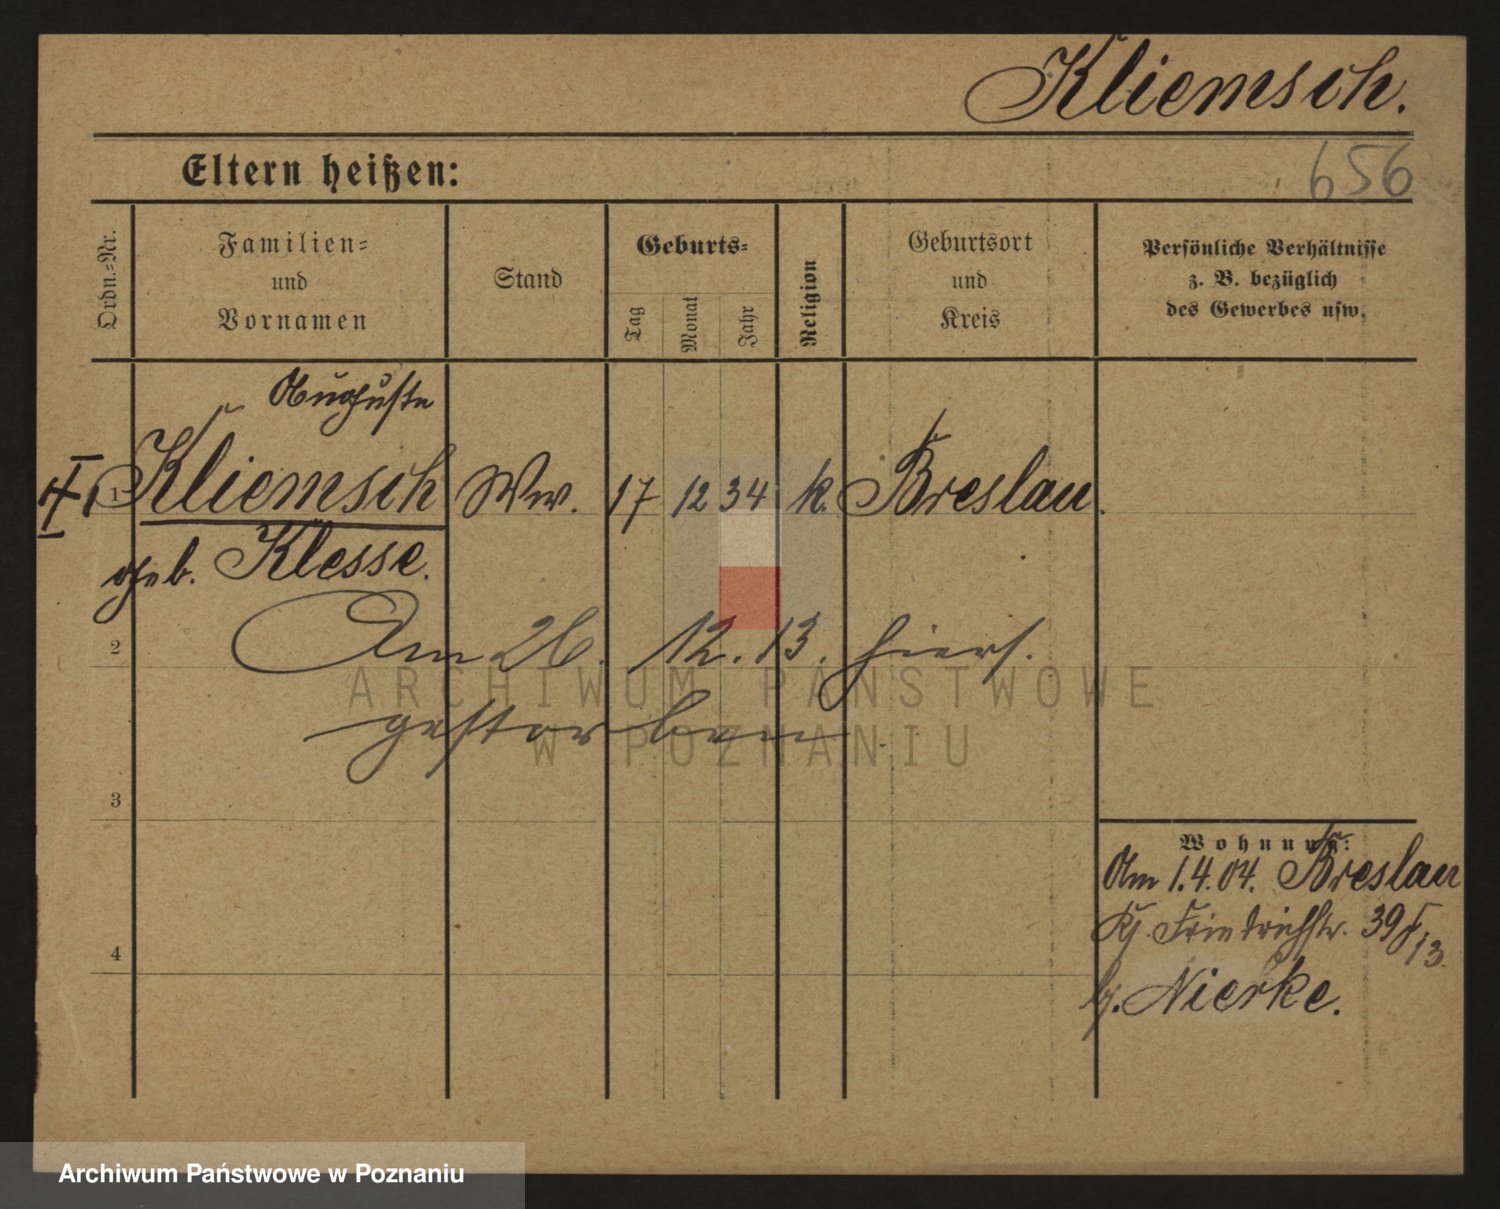 Kliemsch.
Eltern heißen:
656
Ordn.-Nr.
Familien-
und
Vornamen
Stand
Geburts-
Tag
Monat
Jahr
Religion
Geburtsort
und
Kreis
Persönliche Verhältnisse
z. B. bezüglich
des Gewerbes usw.
Auguste
1 Kliemsch Ww. 17 12 34 k. Breslau.
geb. Klesse.
2
Am 26. 12. 13. hiers.
gestorben
ARCHIWUM PAŃSTWOWE
W POZNANIU
3
Wohnung:
Am 1.4.04. Breslau
Friedrichstr. 39
13.
4
b. Nierke.
Archiwum Państwowe w Poznaniu